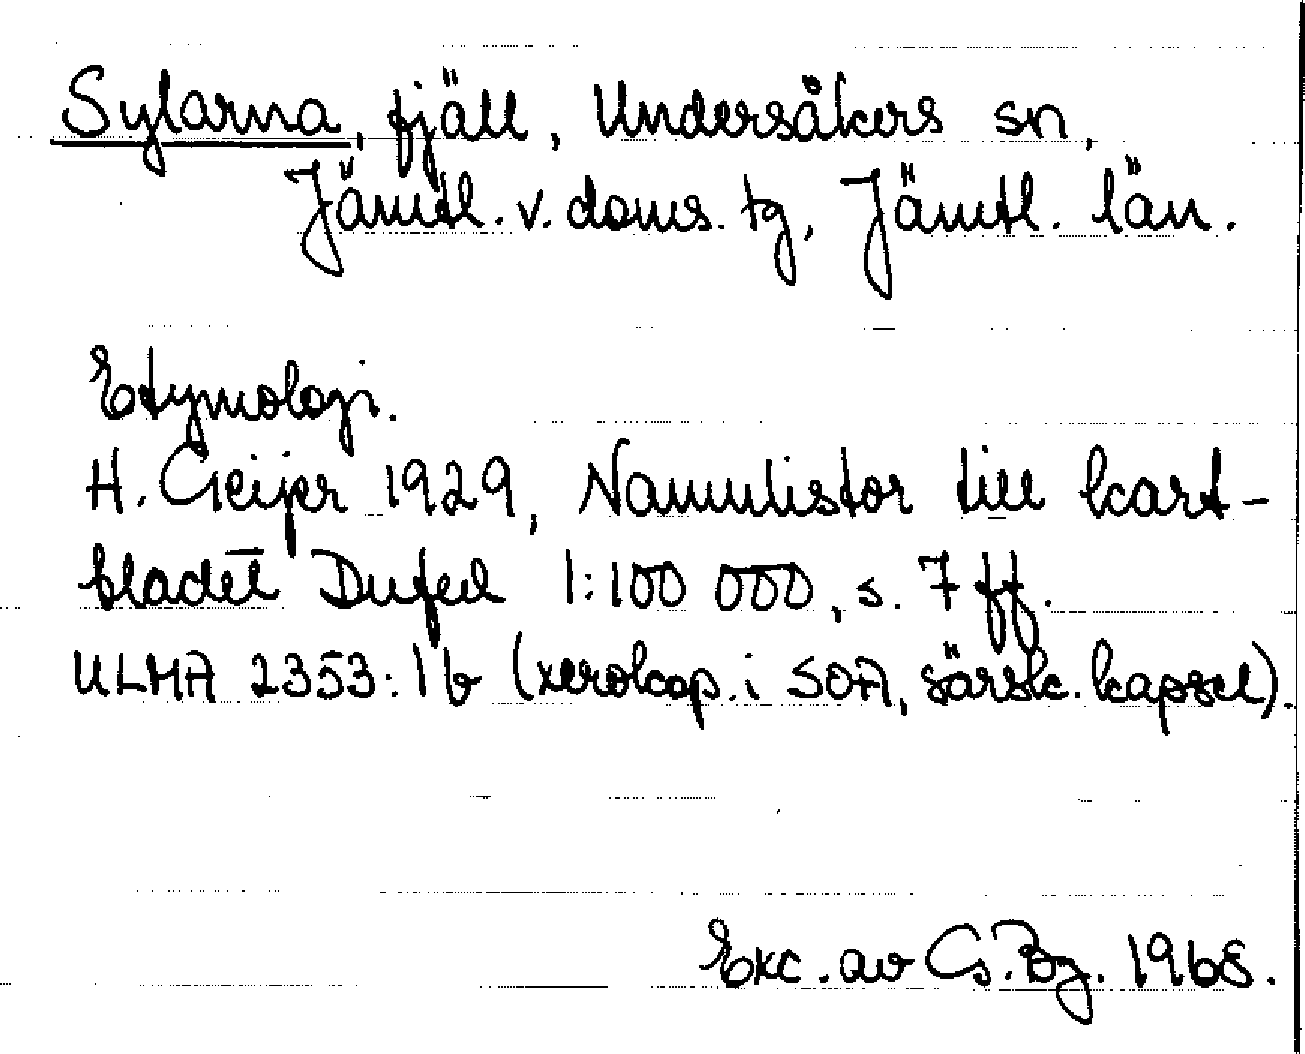 Sylarna, fjäll, Undersåkers sn,
Jämtl. v. doms. tg, Jämtl. län.
Etymologi.
H. Geijer 1929, Namnlistor till kart-
bladet Dufed 1:100 000, s. 7 ff.
ULMA 2353:1 b (xerokop. i SOA, särsk. kapsel).
Exc. av G. Bg. 1968.